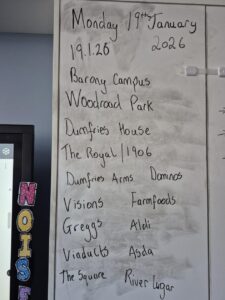 Monday 19th January
19.1.26 2026
Barony Campus
Woodroad Park
Dumfries House
The Royal / 1906
Dumfries Arms Dominos
Visions Farmfoods
Greggs Aldi
Viaducts Asda
The Square River Lugar
NOISE